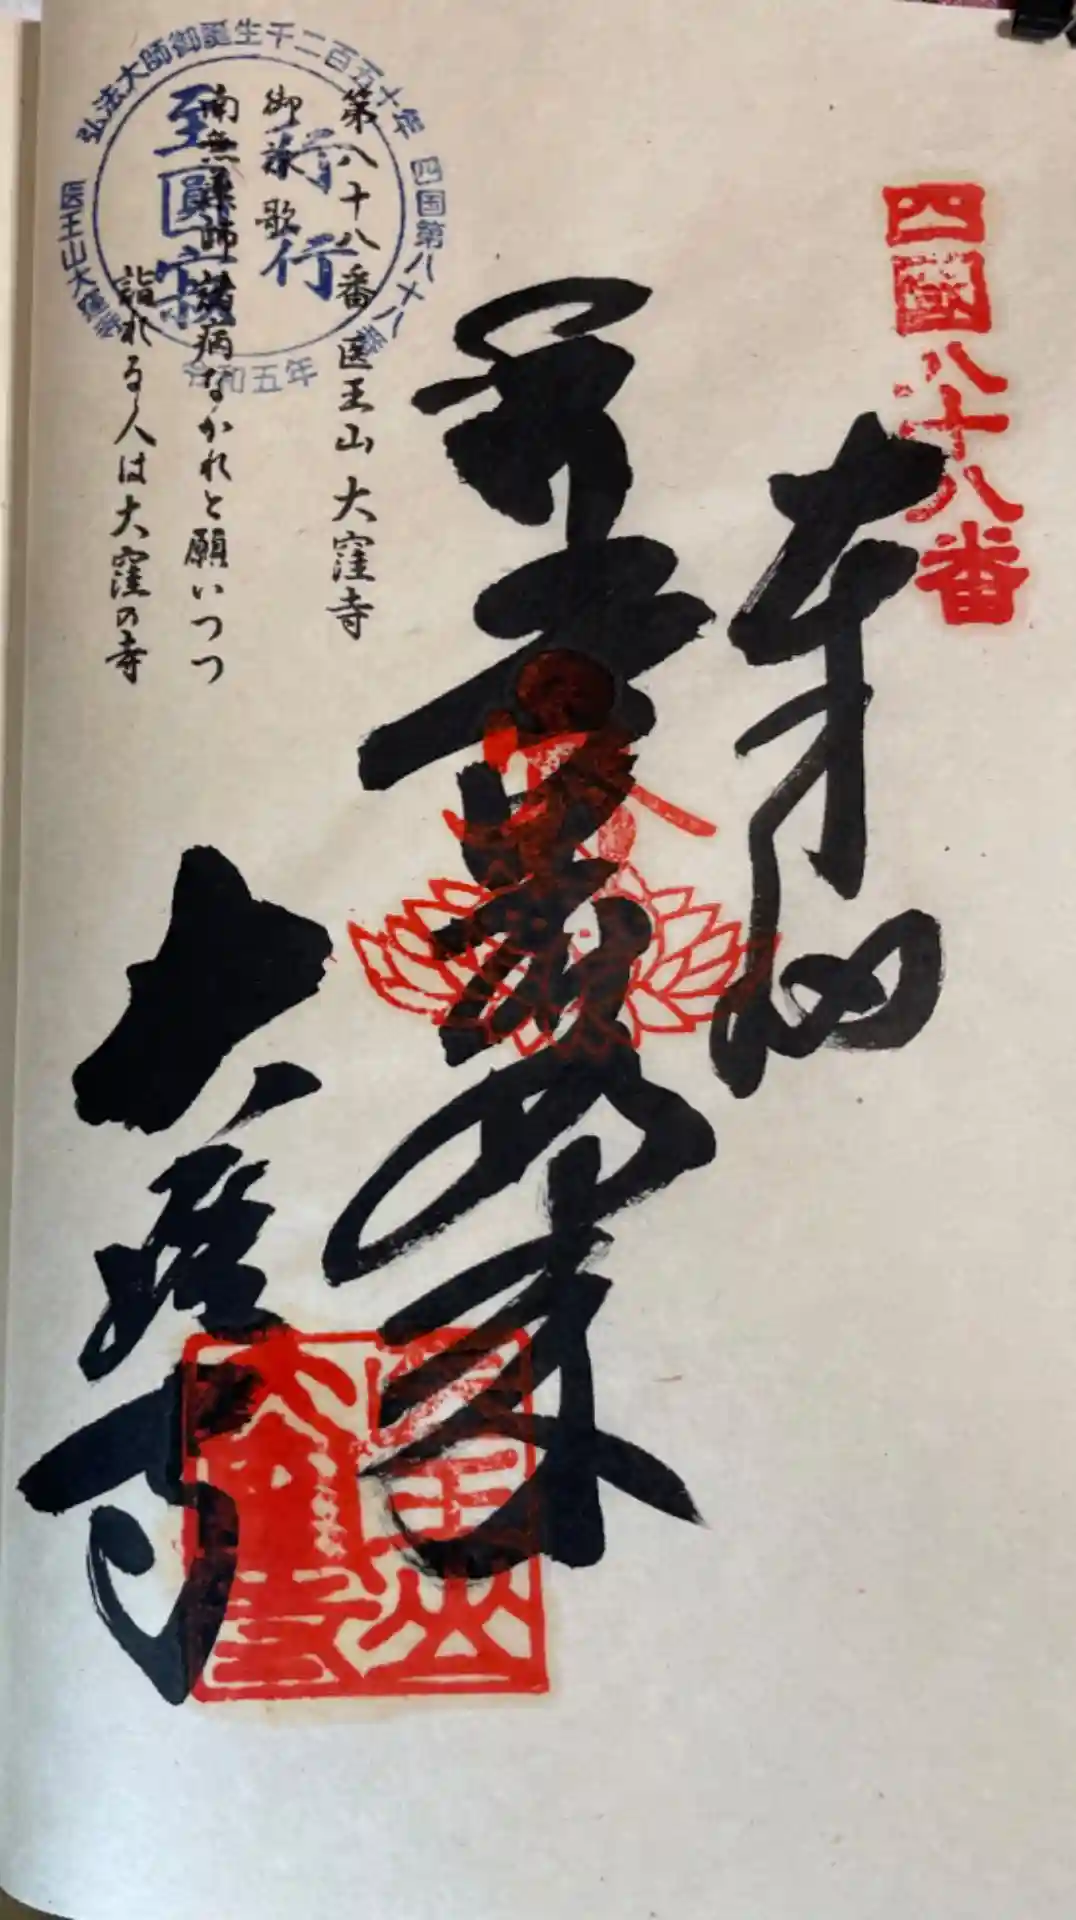 四國八十八番
奉拝
大窪寺
第八十八番 医王山 大窪寺
御詠歌
南無薬師諸病なかれと願いつつ
詣れる人は大窪の寺
弘法大師御誕生千二百五十年
四国第八十八番
医王山大窪寺
令和五年
医王山
大窪寺